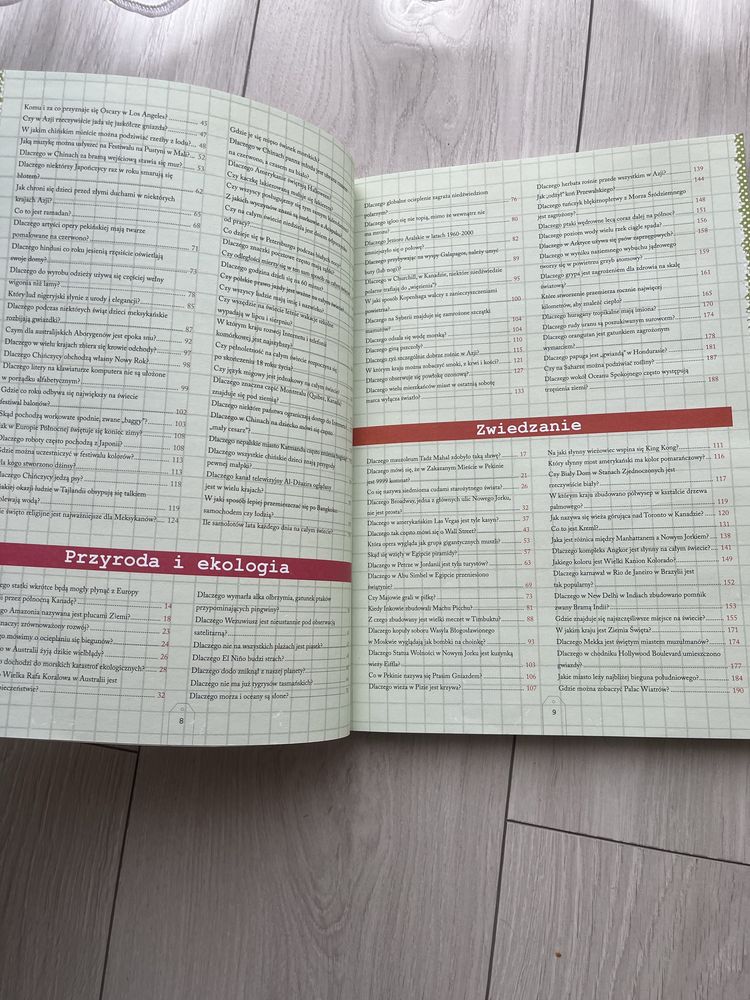 Komu i za co przyznaje się Oscary w Los Angeles? 45
Czy w Azji rzeczywiście jada się jaskółcze gniazda? 47
W jakim chińskim mieście można podziwiać rzeźby z lodu? 48
Jaką muzykę można usłyszeć na Festiwalu na Pustyni w Mali? 52
Dlaczego w Chinach za bramą wejściową stawia się mur? 53
Dlaczego niektórzy Japończycy raz w roku smarują się
błotem? 62
Jak chroni się dzieci przed złymi duchami w niektórych
krajach Azji? 65
Co to jest ramadan? 68
Dlaczego artyści opery pekińskiej mają twarze
pomalowane na czerwono? 71
Dlaczego hindusi co roku jesienią rzęsiście oświetlają
swoje domy? 73
Dlaczego do wyrobu odzieży używa się częściej wełny
wigonia niż lamy? 78
Który lud nigeryjski słynie z urody i elegancji? 85
Dlaczego podczas niektórych świąt dzieci meksykańskie
rozbijają gwiazdki? 87
Czym dla australijskich Aborygenów jest epoka snu? 92
Dlaczego w wielu krajach zbiera się krowie odchody? 97
Dlaczego Chińczycy obchodzą własny Nowy Rok? 98
Dlaczego litery na klawiaturze komputera nie są ułożone
w porządku alfabetycznym? 99
Gdzie co roku odbywa się największy na świecie
festiwal balonów? 102
Skąd pochodzą workowate spodnie, zwane „baggy”? 103
Jak w Europie Północnej świętuje się koniec zimy? 108
Dlaczego roboty często pochodzą z Japonii? 108
Gdzie można uczestniczyć w festiwalu kolorów? 113
Dla kogo stworzono dżinsy? 113
Dlaczego Chińczycy jedzą psy? 118
jakiej okazji ludzie w Tajlandii obsypują się talkiem
oblewają wodą? 119
święto religijne jest najważniejsze dla Meksykanów? 124
Gdzie je się mięso świnek morskich?
Dlaczego w Chinach panna młoda jest ubrana
na czerwono, a czasem na biało?
Dlaczego Amerykanie świętują Halloween?
Czy kaczkę lakierowaną maluje się lakierem?
Czy wszyscy posługujemy się tym samym
Z jakich wyczynów znani są
Czy na całym świecie niedziela jest dniem
od pracy?
Co dzieje się w Petersburgu podczas białych nocy?
Dlaczego znaczki pocztowe często mają ząbki?
Czy odległości mierzy się w ten sam sposób na całym
Dlaczego godzina dzieli się na 60 minut?
Czy polskie prawo jazdy jest ważne na całym świecie?
Czy wszyscy ludzie mają imię i nazwisko?
Czy wszędzie na świecie letnie wakacje szkolne
wypadają w lipcu i sierpniu?
W którym kraju rozwój Internetu i telefonii
komórkowej jest najszybszy?
Czy pełnoletność na całym świecie rozpoczyna się
po skończeniu 18 roku życia?
Czy język migowy jest jednakowy na całym świecie?
Dlaczego znaczna część Montrealu (Quebec, Kanada)
znajduje się pod ziemią?
Dlaczego niektóre państwa ograniczają dostęp do Internetu?
Dlaczego w Chinach na dziecko mówi się czasem
„mały cesarz”?
Dlaczego nepalskie miasto Katmandu często zmienia
Dlaczego wszystkie chińskie dzieci znają przygody
pewnej małpki?
Dlaczego kanał telewizyjny Al-Dżazira oglądany
jest w wielu krajach?
W jaki sposób lepiej przemieszczać się po Bangkoku:
samochodem czy łodzią?
Ile samolotów lata każdego dnia na całym świecie?
Przyroda i ekologia
statki wkrótce będą mogły płynąć z Europy
przez północną Kanadę? 14
Amazonia nazywana jest płucami Ziemi? 18
znaczy: zrównoważony rozwój? 23
mówimy o ocieplaniu się biegunów? 24
w Australii żyją dzikie wielbłądy? 26
dochodzi do morskich katastrof ekologicznych? 28
Wielka Rafa Koralowa w Australii jest
32
Dlaczego wymarła alka olbrzymia, gatunek ptaków
przypominających pingwiny?
Dlaczego Wezuwiusz jest nieustannie pod obserwacją
satelitarną?
Dlaczego nie na wszystkich plażach jest piasek?
Dlaczego El Niño budzi strach?
Dlaczego dodo zniknął z naszej planety?
Dlaczego nie ma już tygrysów tasmańskich?
Dlaczego morza i oceany są słone?
8
Dlaczego globalne ocieplenie zagraża niedźwiedziom
polarnym? 76
Dlaczego igloo się nie topi, mimo że wewnątrz nie
ma mrozu? 80
Dlaczego Jezioro Aralskie w latach 1960-2000
zmniejszyło się o połowę? 82
Dlaczego przybywając na wyspy Galapagos, należy umyć
buty (lub nogi)? 89
Dlaczego w Churchill, w Kanadzie, niektóre niedźwiedzie
polarne trafiają do „więzienia”? 95
W jaki sposób Kopenhaga walczy z zanieczyszczeniami
powietrza? 100
Dlaczego na Syberii znajduje się zamrożone szczątki
mamutów? 104
Dlaczego odsala się wodę morską? 104
Dlaczego giną pszczoły? 110
Dlaczego ryż szczególnie dobrze rośnie w Azji? 115
W którym kraju można zobaczyć smoki, z krwi i kości? 121
Dlaczego obserwuje się powłokę ozonową? 127
Dlaczego wielu mieszkańców miast w ostatnią sobotę
marca wyłącza światło? 133
Dlaczego herbata rośnie przede wszystkim w Azji? 139
Jak „odżył” koń Przewalskiego? 144
Dlaczego tuńczyk błękitnopłetwy z Morza Śródziemnego
jest zagrożony? 148
Dlaczego ptaki wędrowne lecą coraz dalej na północ? 151
Dlaczego poziom wody wielu rzek ciągle spada? 156
Dlaczego w Arktyce używa się psów zaprzęgowych? 158
Dlaczego w wyniku naziemnego wybuchu jądrowego
tworzy się w powietrzu grzyb atomowy? 159
Dlaczego grypa jest zagrożeniem dla zdrowia na skalę
światową? 161
Które stworzenie przemierza rocznie najwięcej
kilometrów, aby znaleźć ciepło? 165
Dlaczego huragany tropikalne mają imiona? 170
Dlaczego rudy uranu są poszukiwanym surowcem? 174
Dlaczego orangutan jest gatunkiem zagrożonym
wymarciem? 178
Dlaczego papuga jest „gwiazdą” w Hondurasie? 181
Czy na Saharze można podziwiać rośliny? 187
Dlaczego wokół Oceanu Spokojnego często występują
trzęsienia ziemi? 188
Zwiedzanie
Dlaczego mauzoleum Tadż Mahal zdobyło taką sławę? 17
Dlaczego mówi się, że w Zakazanym Mieście w Pekinie
jest 9999 komnat? 21
Co się nazywa siedmioma cudami starożytnego świata? 26
Dlaczego Broadway, jedna z głównych ulic Nowego Jorku,
nie jest prosta? 32
Dlaczego w amerykańskim Las Vegas jest tyle kasyn? 37
Dlaczego tak często mówi się o Wall Street? 43
Która opera wygląda jak grupa gigantycznych muszli? 53
Skąd się wzięły w Egipcie piramidy? 57
Dlaczego w Petrze w Jordanii jest tylu turystów? 63
Dlaczego w Abu Simbel w Egipcie przeniesiono
świątynie? 69
Czy Majowie grali w piłkę? 73
Kiedy Inkowie zbudowali Machu Picchu? 81
Z czego zbudowany jest wielki meczet w Timbuktu? 88
Dlaczego kopuły soboru Wasyla Błogosławionego
w Moskwie wyglądają jak bombki na choinkę? 93
Dlaczego Statua Wolności w Nowym Jorku jest kuzynką
wieży Eiffla? 103
Co w Pekinie nazywa się Ptasim Gniazdem? 106
Dlaczego wieża w Pizie jest krzywa? 107
Na jaki słynny wieżowiec wspina się King Kong? 111
Który słynny most amerykański ma kolor pomarańczowy? 116
Czy Biały Dom w Stanach Zjednoczonych jest
rzeczywiście biały? 117
W którym kraju zbudowano półwysep w kształcie drzewa
palmowego? 119
Jak nazywa się wieża górująca nad Toronto w Kanadzie? 120
Co to jest Kreml? 131
Jaka jest różnica między Manhattanem a Nowym Jorkiem? 138
Dlaczego kompleks Angkor jest słynny na całym świecie? 141
Jakiego koloru jest Wielki Kanion Kolorado? 149
Dlaczego karnawał w Rio de Janeiro w Brazylii jest
tak popularny? 152
Dlaczego w New Delhi w Indiach zbudowano pomnik
zwany Bramą Indii? 153
Gdzie znajduje się najszczęśliwsze miejsce na świecie? 155
W jakim kraju jest Ziemia Święta? 171
Dlaczego Mekka jest świętym miastem muzułmanów? 174
Dlaczego w chodniku Hollywood Boulevard umieszczono
gwiazdy? 177
Jakie miasto leży najbliżej bieguna południowego? 184
Gdzie można zobaczyć Pałac Wiatrów? 190
9